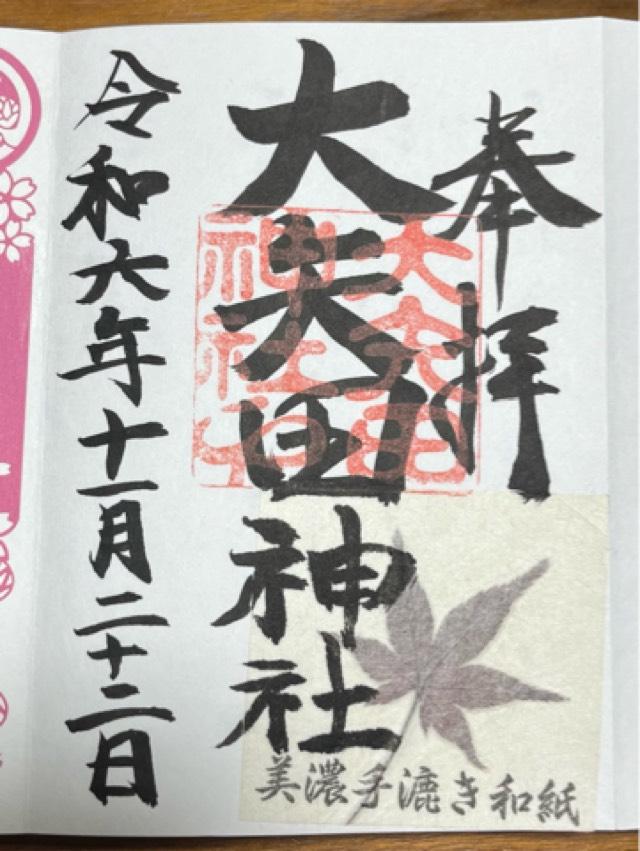 奉拝
大矢田神社
令和六年十一月二十二日
大矢田
神社
美濃手漉き和紙